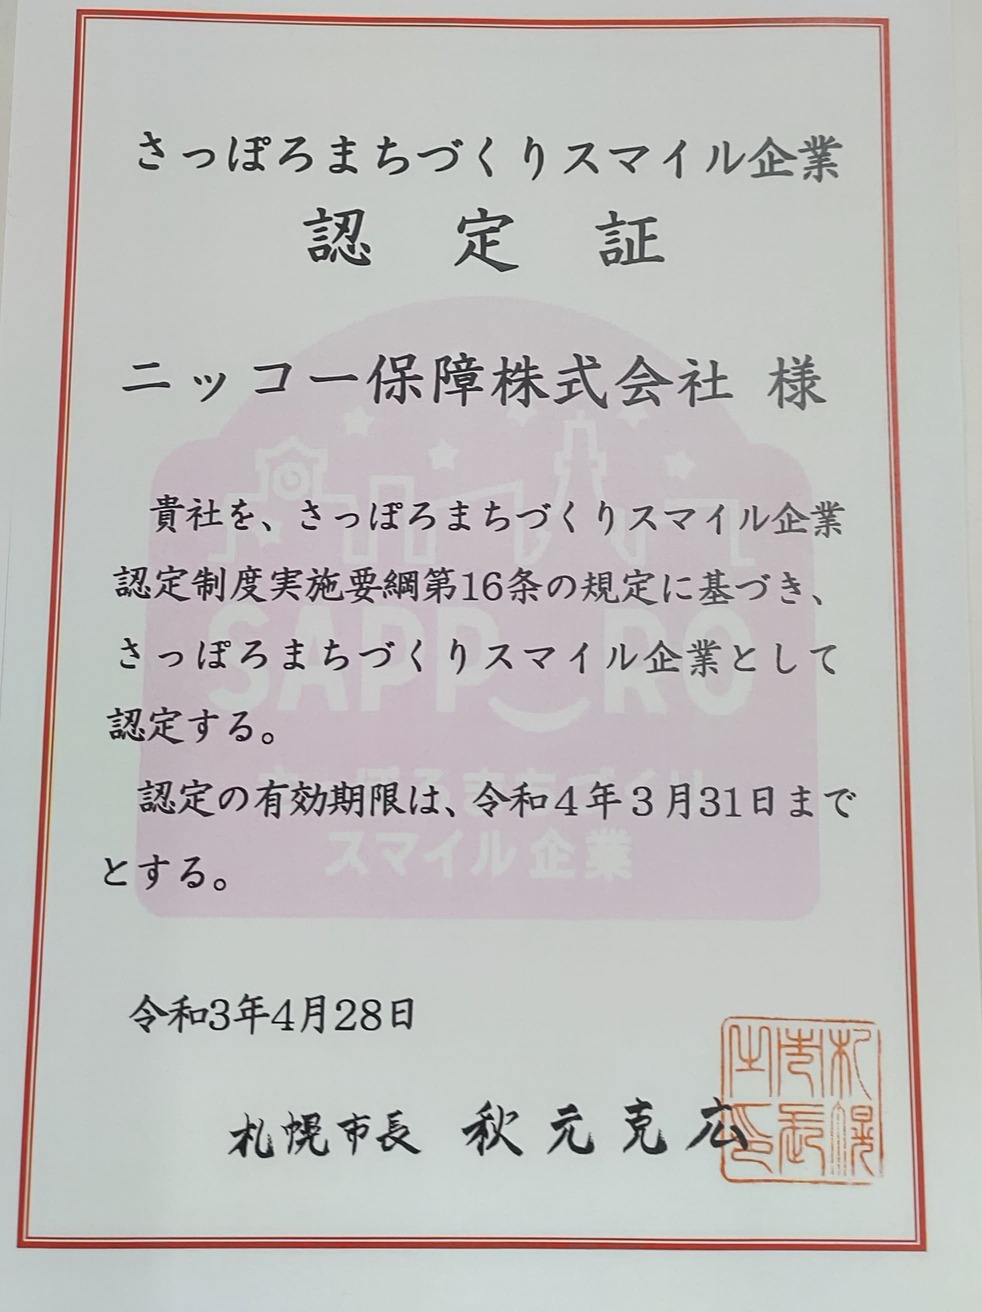 さっぽろまちづくりスマイル企業
認定証
ニッコー保障株式会社 様
貴社を、さっぽろまちづくりスマイル企業
認定制度実施要綱第16条の規定に基づき、
さっぽろまちづくりスマイル企業として
認定する。
認定の有効期限は、令和4年3月31日まで
とする。
SAPPORO
さっぽろまちづくり
スマイル企業
令和3年4月28日
札幌市長 秋元克広
札幌市長之印